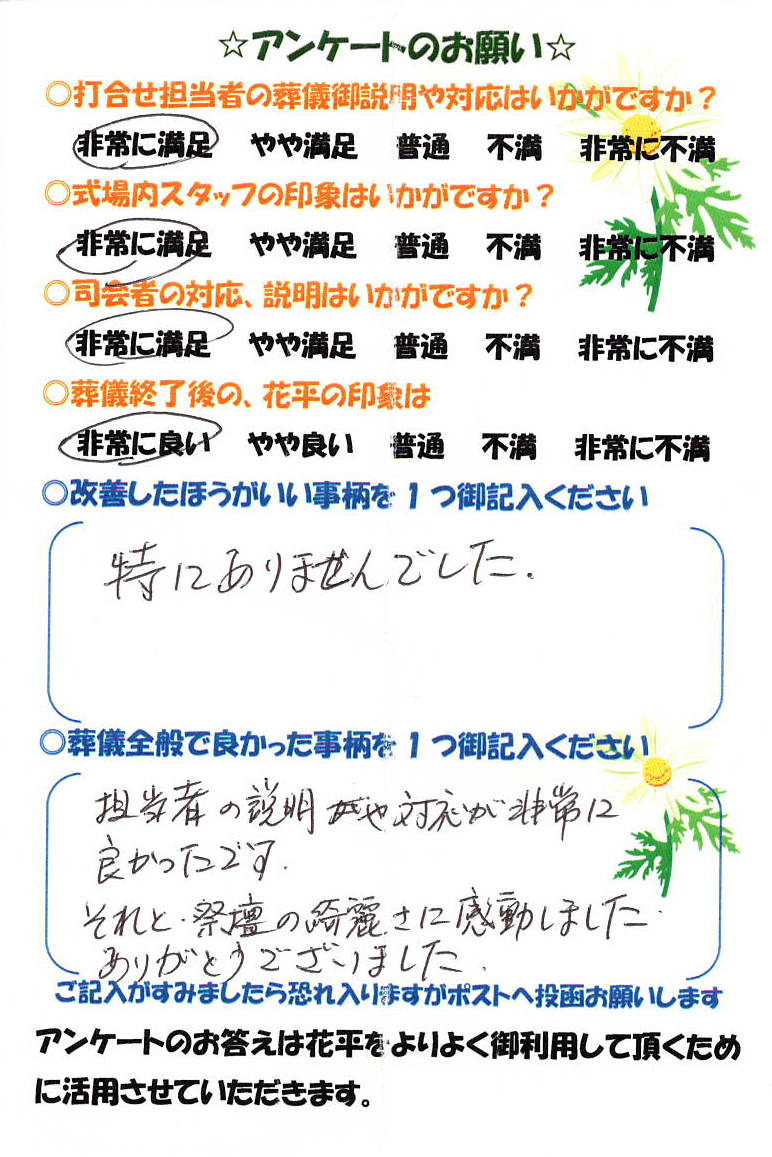 ☆アンケートのお願い☆
◎打合せ担当者の葬儀御説明や対応はいかがですか?
非常に満足 やや満足 普通 不満 非常に不満
◎式場内スタッフの印象はいかがですか?
非常に満足 やや満足 普通 不満 非常に不満
◎司会者の対応、説明はいかがですか?
非常に満足 やや満足 普通 不満 非常に不満
◎葬儀終了後の、花平の印象は
非常に良い やや良い 普通 不満 非常に不満
◎改善したほうがいい事柄を1つ御記入ください
特にありませんでした.
◎葬儀全般で良かった事柄を1つ御記入ください
担当者の説明や対応が非常に
良かったです.
それと.祭壇の綺麗さに感動しました.
ありがとうございました.
ご記入がすみましたら恐れ入りますがポストへ投函お願いします
アンケートのお答えは花平をよりよく御利用して頂くため
に活用させていただきます。